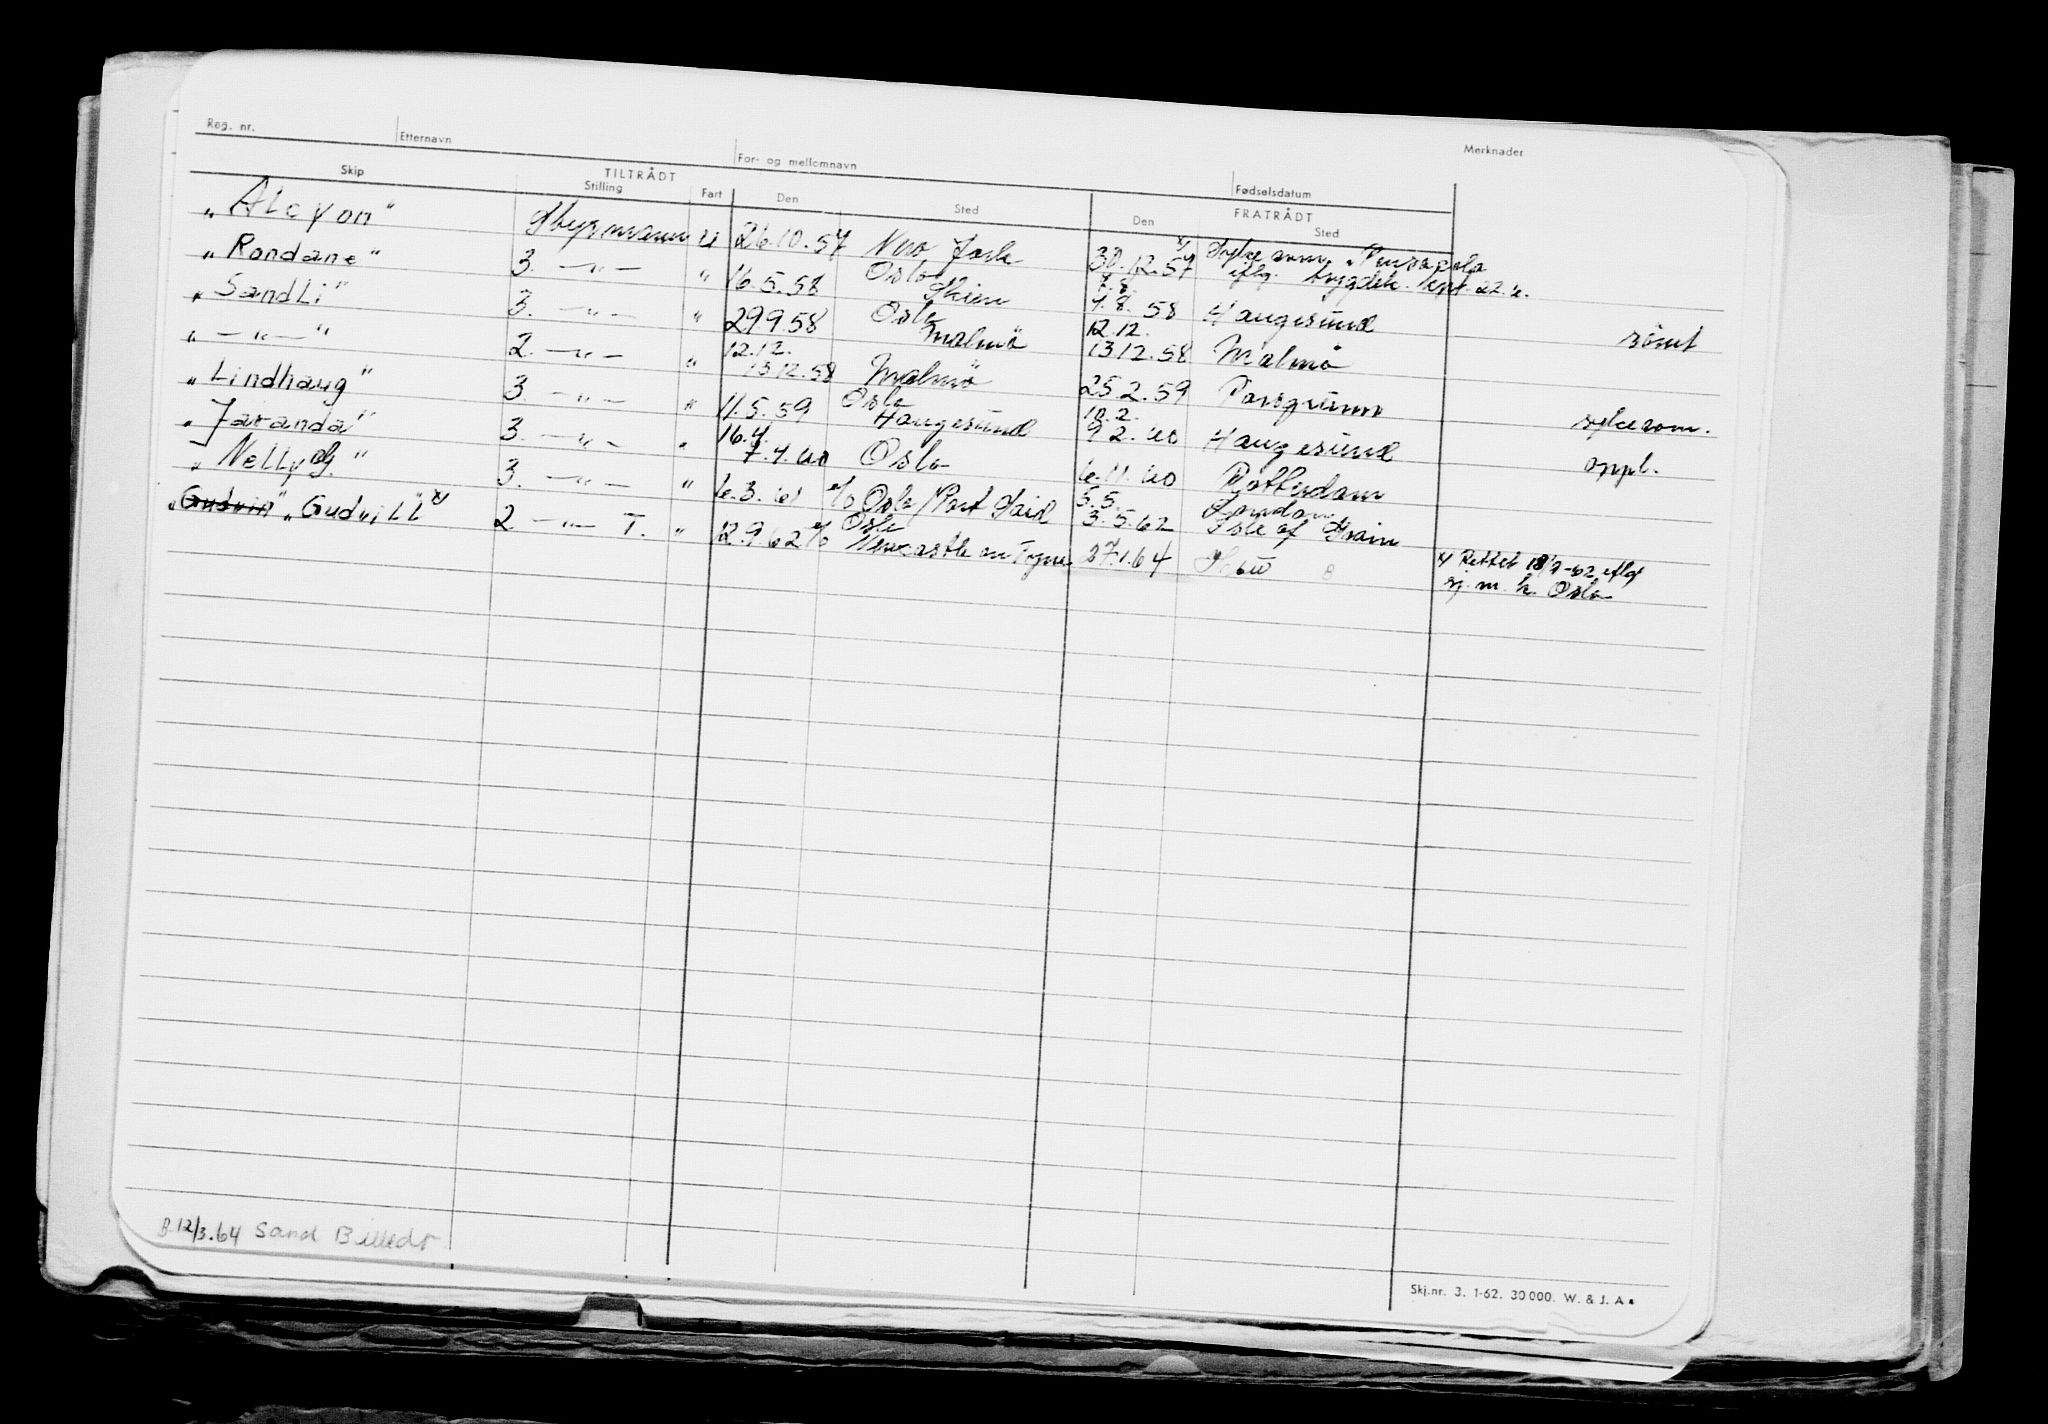 Reg. nr. Etternavn For- og mellomnavn Fødselsdatum Merknader
TILTRÅDT FRATRÅDT
Skip Stilling Fart Den Sted Den Sted
"Alcyon" Styrmann u 26.10.57 New York 30.12.57 x/
"Rondane" 3. -"- " 16.5.58 Oslo Skien 7.8. 4.8.58 Haugesund
"SandLi" 3. -"- " 29.9.58 Oslo Malmö 12.12. 13.12.58 Malmö sömt
"-"-" 2. -"- " 12.12. 13.12.58 Malmö 25.2.59 Porsgrunn
"Lindhaug" 3. -"- " 11.5.59 Oslo Haugesund 10.2. 9.2.60 Haugesund sykerom.
"Jaranda" 3. -"- " 16.4. 7.4.60 Oslo 6.11.60 Rotterdam oppl.
"Nelly" 3. -"- " 6.3.61 Oslo/Port Said 5.5. 3.5.62 London Isle of Grain
"Gudvin" "GudviLL" x/ 2 -"- T. " 12.9.62 Oslo Newcastle on Tyne 27.1.64
x/ Rettet 18/9-62 iflg
sj. m. k. Oslo
B. 12/3.64 Sand Billedr
Skj.nr. 3. 1-62. 30000. W. & J. A.